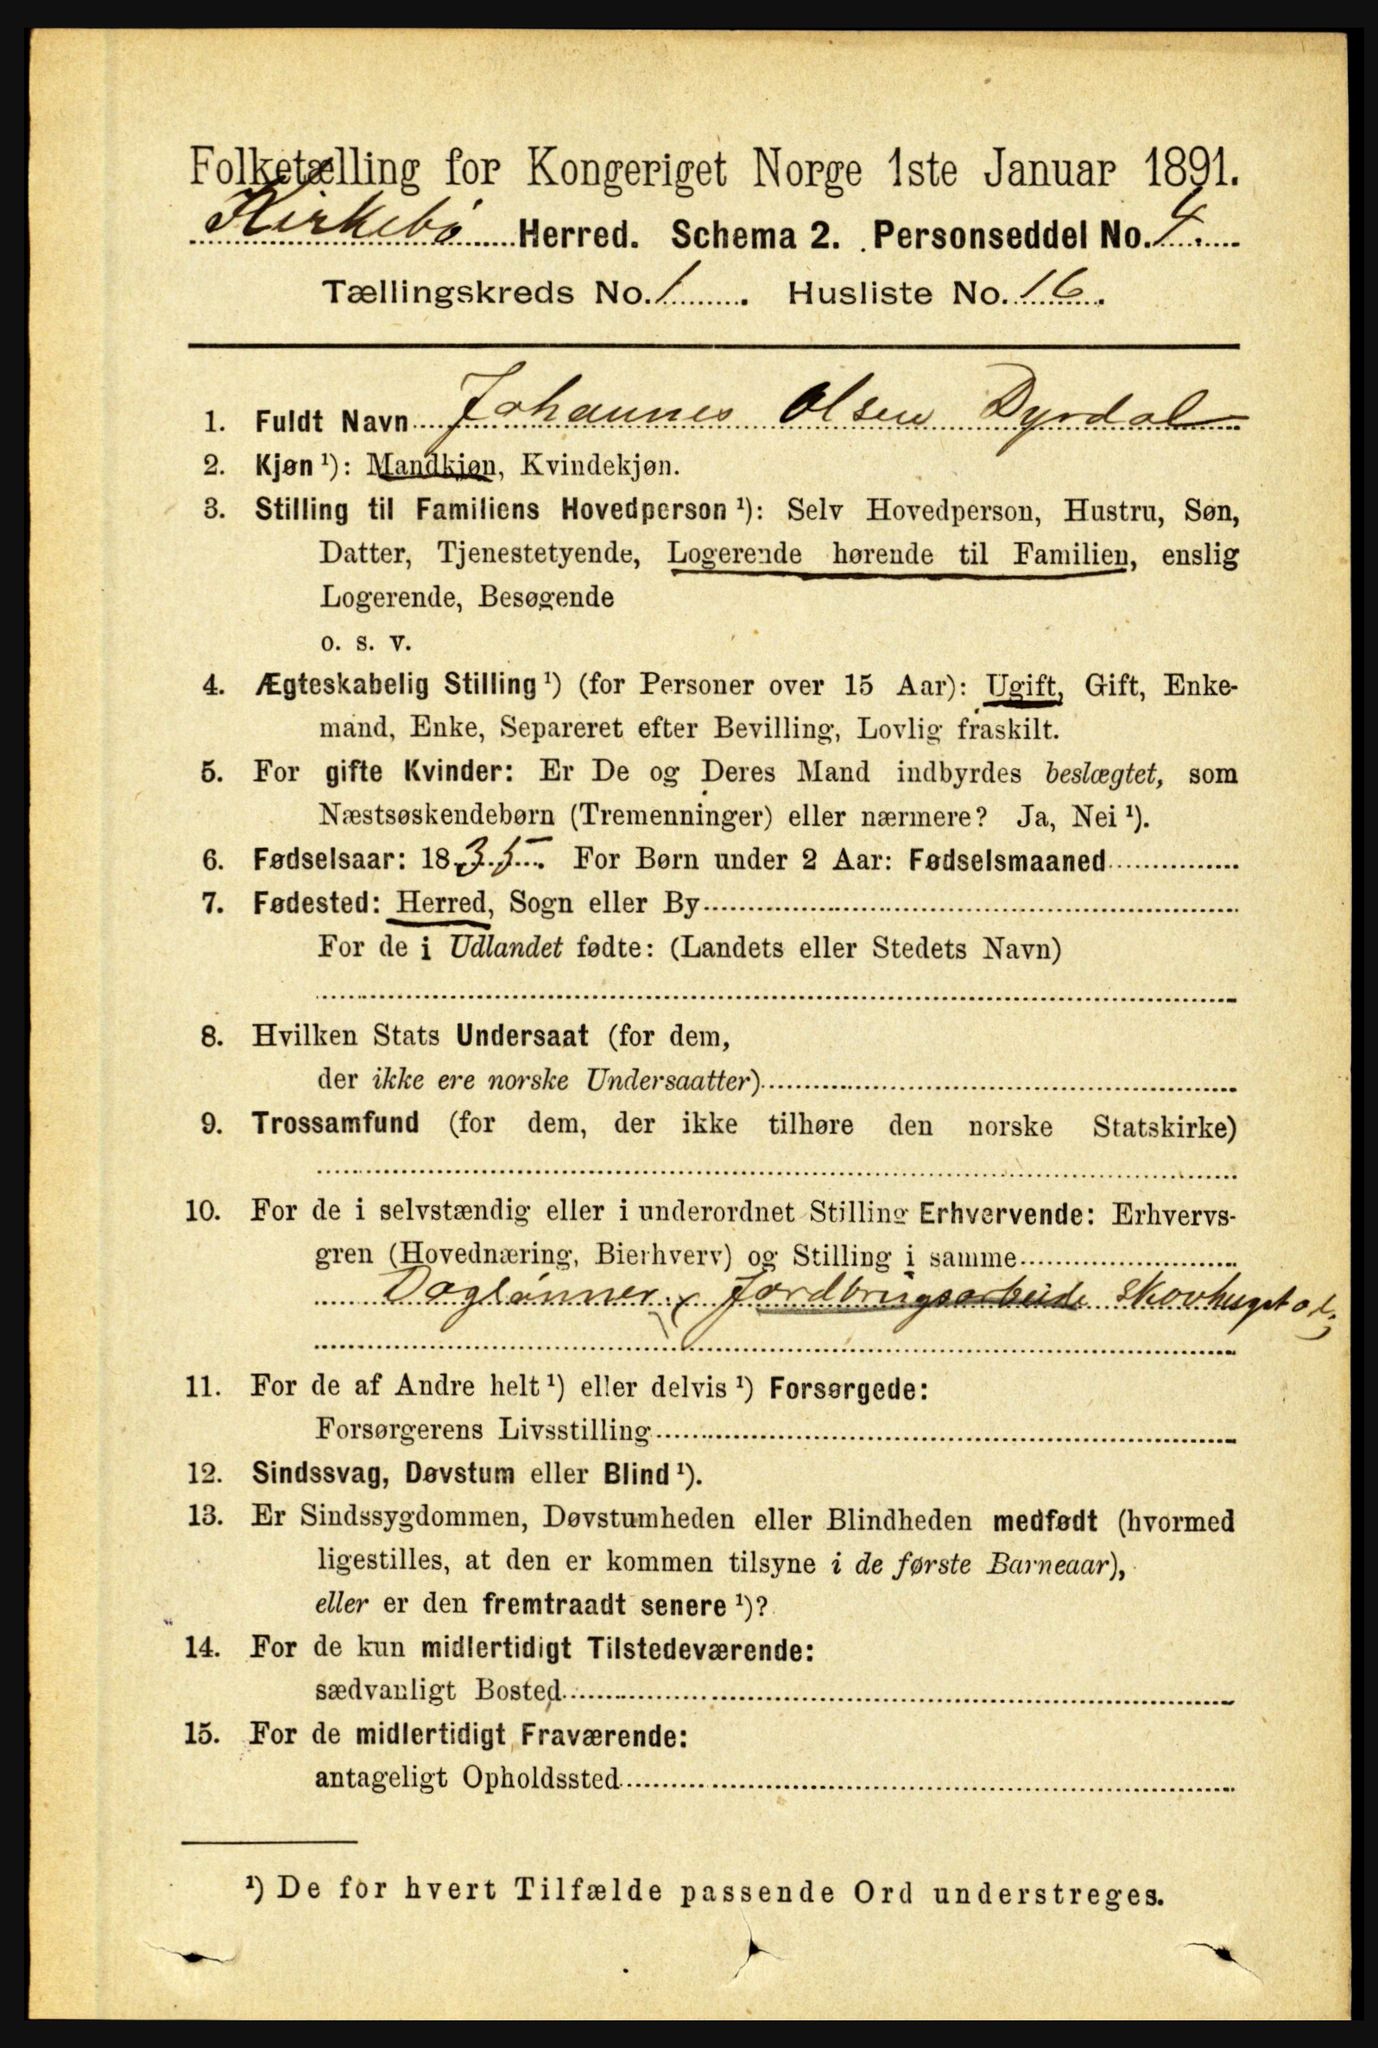 Folketælling for Kongeriget Norge 1ste Januar 1891.
Kirkebø Herred. Schema 2. Personseddel No. 4.
Tællingskreds No. 1. Husliste No. 16.
1. Fuldt Navn Johannes Olsen Dyrdal
2. Kjøn ¹): Mandkjøn, Kvindekjøn.
3. Stilling til Familiens Hovedperson ¹): Selv Hovedperson, Hustru, Søn,
Datter, Tjenestetyende, Logerende hørende til Familien, enslig
Logerende, Besøgende
o. s. v.
4. Ægteskabelig Stilling ¹) (for Personer over 15 Aar): Ugift, Gift, Enke-
mand, Enke, Separeret efter Bevilling, Lovlig fraskilt.
5. For gifte Kvinder: Er De og Deres Mand indbyrdes beslægtet, som
Næstsøskendebørn (Tremenninger) eller nærmere? Ja, Nei ¹).
6. Fødselsaar: 1835. For Børn under 2 Aar: Fødselsmaaned
7. Fødested: Herred, Sogn eller By
For de i Udlandet fødte: (Landets eller Stedets Navn)
8. Hvilken Stats Undersaat (for dem,
der ikke ere norske Undersaatter)
9. Trossamfund (for dem, der ikke tilhøre den norske Statskirke)
10. For de i selvstændig eller i underordnet Stilling Erhvervende: Erhvervs-
gren (Hovednæring, Bierhverv) og Stilling i samme
Daglønner, Jordbrugsarbeide skovhugst o. l.
11. For de af Andre helt ¹) eller delvis ¹) Forsørgede:
Forsørgerens Livsstilling
12. Sindssvag, Døvstum eller Blind ¹).
13. Er Sindssygdommen, Døvstumheden eller Blindheden medfødt (hvormed
ligestilles, at den er kommen tilsyne i de første Barneaar),
eller er den fremtraadt senere ¹)?
14. For de kun midlertidigt Tilstedeværende:
sædvanligt Bosted
15. For de midlertidigt Fraværende:
antageligt Opholdssted
¹) De for hvert Tilfælde passende Ord understreges.